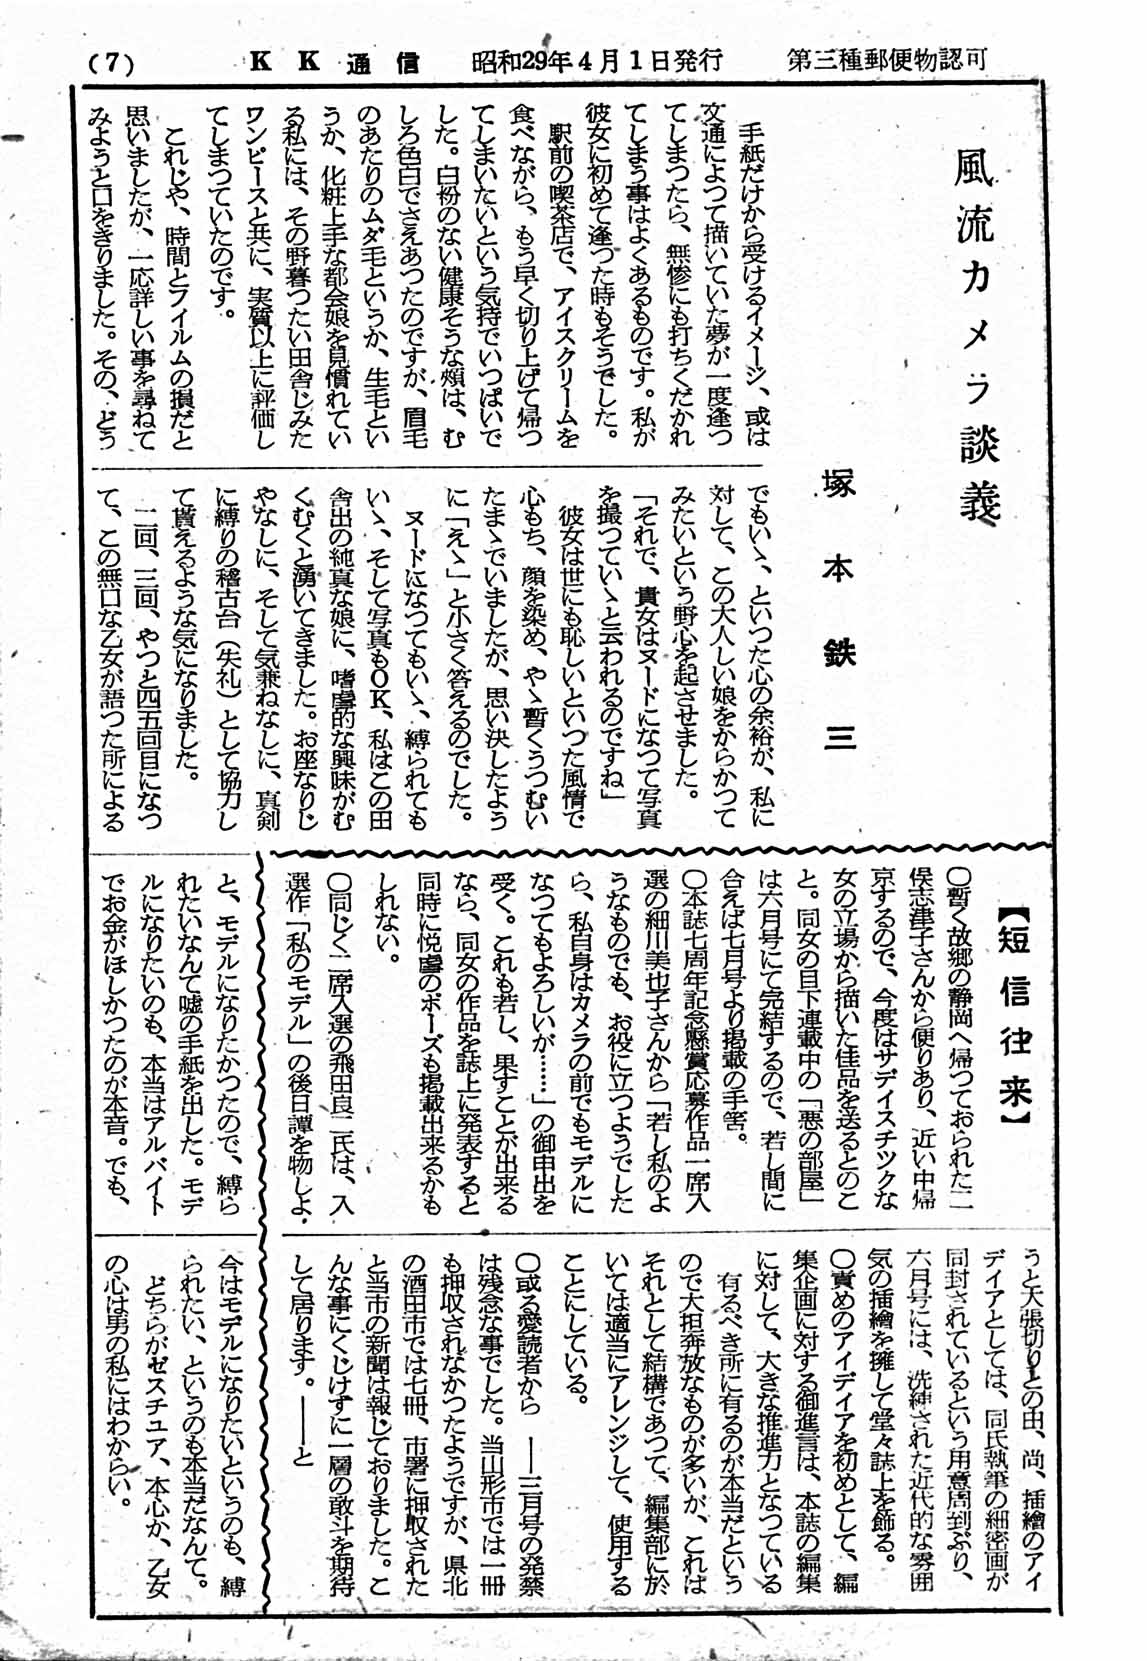 (7)
KK通信
昭和29年4月1日発行
第三種郵便物認可
風流カメラ談義
塚本鉄三
手紙だけから受けるイメージ、或は
文通によつて描いていた夢が一度逢つ
てしまつたら、無惨にも打ちくだかれ
てしまう事はよくあるものです。私が
彼女に初めて逢つた時もそうでした。
駅前の喫茶店で、アイスクリームを
食べながら、もう早く切り上げて帰つ
てしまいたいという気持でいつぱいで
した。白粉のない健康そうな頬は、む
しろ色白でさえあつたのですが、眉毛
のあたりのムダ毛というか、生毛とい
うか、化粧上手な都会娘を見慣れてい
る私には、その野暮つたい田舎じみた
ワンピースと共に、実質以上に評価し
てしまつていたのです。
これじや、時間とフイルムの損だと
思いましたが、一応詳しい事を尋ねて
みようと口をきりました。その、どう
でもいゝ、といつた心の余裕が、私に
対して、この大人しい娘をからかつて
みたいという野心を起させました。
「それで、貴女はヌードになつて写真
を撮つていゝと云われるのですね」
彼女は世にも恥しいといつた風情で
心もち、顔を染め、やゝ暫くうつむい
たまゝでいましたが、思い決したよう
に「えゝ」と小さく答えるのでした。
ヌードになつてもいゝ、縛られても
いゝ、そして写真もOK、私はこの田
舎出の純真な娘に、嗜虐的な興味がむ
くむくと湧いてきました。お座なりじ
やなしに、そして気兼ねなしに、真剣
に縛りの稽古台(失礼)として協力し
て貰えるような気になりました。
二回、三回、やつと四五回目になつ
て、この無口な乙女が語つた所による
と、モデルになりたかつたので、縛ら
れたいなんて嘘の手紙を出した。モデ
ルになりたいのも、本当はアルバイト
でお金がほしかつたのが本音。でも、
今はモデルになりたいというのも、縛
られたい、というのも本当だなんて。
どちらがゼスチュア、本心か、乙女
の心は男の私にはわからい。
【短信往来】
〇暫く故郷の静岡へ帰つておられた二
俣志津子さんから便りあり、近い中帰
京するので、今度はサデイスチツクな
女の立場から描いた佳品を送るとのこ
と。同女の目下連載中の「悪の部屋」
は六月号にて完結するので、若し間に
合えば七月号より掲載の手筈。
〇本誌七周年記念懸賞応募作品一席入
選の細川美也子さんから「若し私のよ
うなものでも、お役に立つようでした
ら、私自身はカメラの前でもモデルに
なつてもよろしいが……」の御申出を
受く。これも若し、果すことが出来る
なら、同女の作品を誌上に発表すると
同時に悦虐のポーズも掲載出来るかも
しれない。
〇同じく二席入選の飛田良二氏は、入
選作「私のモデル」の後日譚を物しよ
うと大張切りとの由、尚、插繪のアイ
デイアとしては、同氏執筆の細密画が
同封されているという用意周到ぶり、
六月号には、洗練された近代的な雰囲
気の插繪を擁して堂々誌上を飾る。
〇責めのアイデイアを初めとして、編
集企画に対する御進言は、本誌の編集
に対して、大きな推進力となつている
有るべき所に有るのが本当だという
ので大担奔放なものが多いが、これは
それとして結構であつて、編集部に於
いては適当にアレンジして、使用する
ことにしている。
〇或る愛読者から ――三月号の発禁
は残念な事でした。当山形市では一冊
も押収されなかつたようですが、県北
の酒田市では七冊、市署に押収された
と当市の新聞は報じておりました。こ
んな事にくじけずに一層の敢斗を期待
して居ります。――と